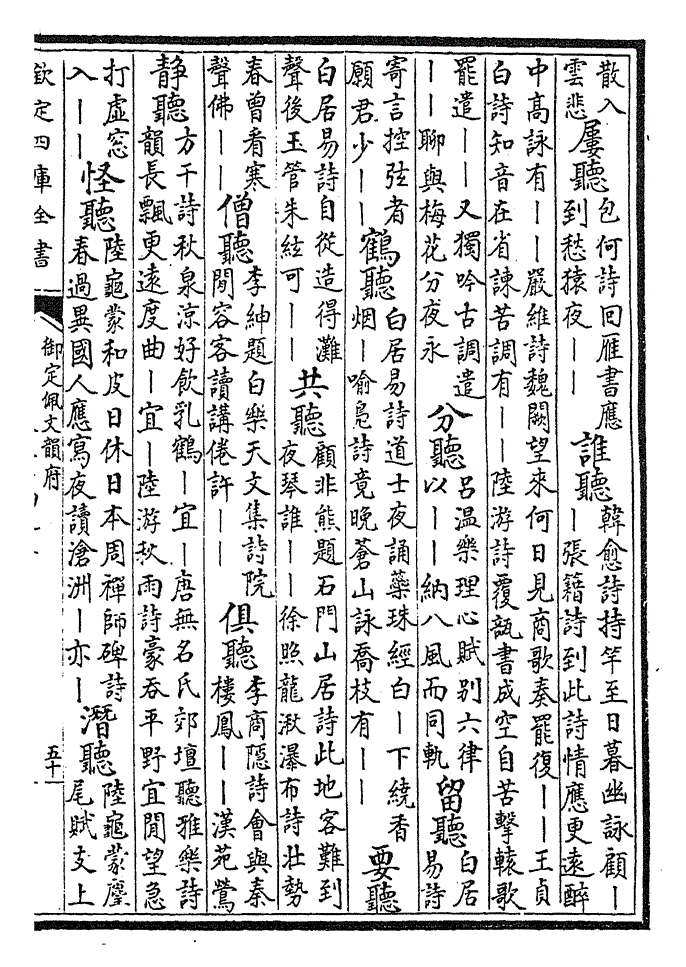 散入
雲悲
屢聽
包何詩回雁書應
到愁猿夜——
誰聽
韓愈詩持竿至日暮幽詠顧—
—張籍詩到此詩情應更遠醉
中高詠有——嚴維詩魏闕望來何日見商歌奏罷復——王貞
白詩知音在省諫苦調有——陸游詩覆瓿書成空自苦擊轅歌
罷遣——又獨吟古調遣
——聊與梅花分夜永
分聽
呂温樂理心賦别六律
以——納八風而同軌
留聽
白居
易詩
寄言控弦者
願君少——
鶴聽
白居易詩道士夜誦蘂珠經白—下繞香
烟—喻鳧詩竟晚蒼山詠喬枝有——
要聽
白居易詩自從造得灘
聲後玉管朱絃可——
共聽
顧非熊題石門山居詩此地客難到
夜琴誰——徐照龍湫瀑布詩壯勢
春曾看寒
聲佛——
僧聽
李紳題白樂天文集詩院
閒容客讀講倦許——
俱聽
李商隱詩會與秦
樓鳳——漢苑鶯
静聽
方干詩秋泉涼好飲乳鶴—宜—唐無名氏郊壇聽雅樂詩
韻長飄更遠度曲—宜—陸游秋雨詩豪吞平野宜閒望急
打虛窓
入——
怪聽
陸龜蒙和皮日休日本周禪師碑詩
春過異國人應寫夜讀滄洲—亦—
潛聽
陸龜蒙麈
尾賦支上
欽定四庫全書
御定佩文韻府
五十一